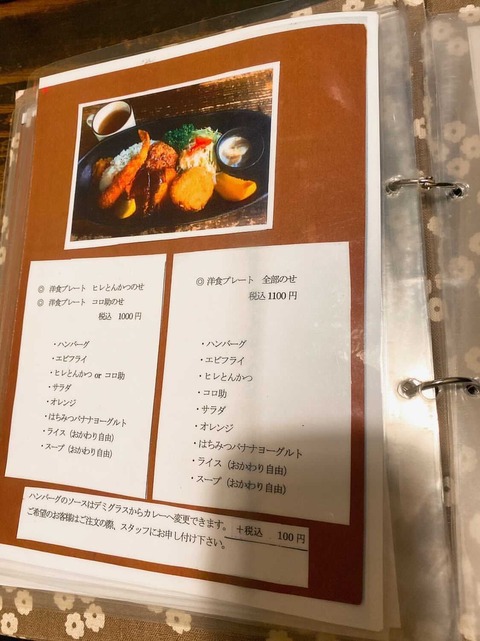 ◎ 洋食プレート ヒレとんかつのせ
◎ 洋食プレート コロ助のせ
税込 1000円
・ハンバーグ
・エビフライ
・ヒレとんかつ or コロ助
・サラダ
・オレンジ
・はちみつバナナヨーグルト
・ライス（おかわり自由）
・スープ（おかわり自由）
◎ 洋食プレート 全部のせ
税込1100円
・ハンバーグ
・エビフライ
・ヒレとんかつ
・コロ助
・サラダ
・オレンジ
・はちみつバナナヨーグルト
・ライス（おかわり自由）
・スープ（おかわり自由）
ハンバーグのソースはデミグラスからカレーへ変更できます。 +税込 100円
ご希望のお客様はご注文の際、スタッフにお申し付け下さい。